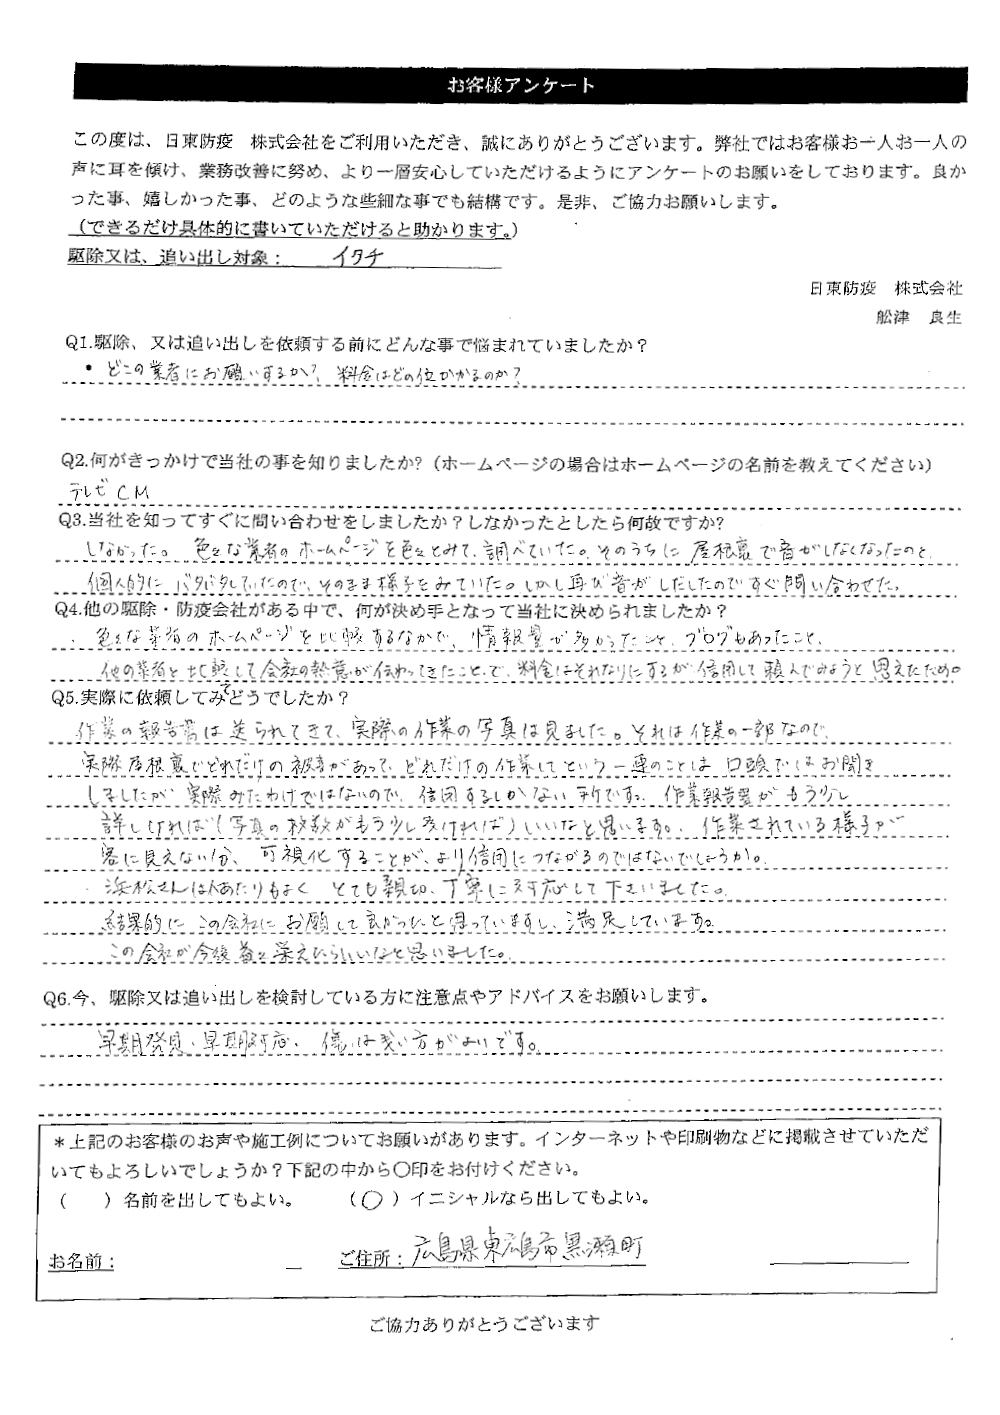 お客様アンケート
この度は、日東防疫　株式会社をご利用いただき、誠にありがとうございます。弊社ではお客様お一人お一人の
声に耳を傾け、業務改善に努め、より一層安心していただけるようにアンケートのお願いをしております。良か
った事、嬉しかった事、どのような些細な事でも結構です。是非、ご協力お願いします。
（できるだけ具体的に書いていただけると助かります。）
駆除又は、追い出し対象：　イタチ
日東防疫　株式会社
舩津　良生
Q1.駆除、又は追い出しを依頼する前にどんな事で悩まれていましたか？
・どこの業者にお願いするか？、料金はどの位かかるのか？
Q2.何がきっかけで当社の事を知りましたか？（ホームページの場合はホームページの名前を教えてください）
テレビCM
Q3.当社を知ってすぐに問い合わせをしましたか？しなかったとしたら何故ですか?
しなかった。色々な業者のホームページを色々とみて、調べていた。そのうちに屋根裏で音がしなくなったのと、
個人的にバタバタしていたので、そのまま様子をみていた。しかし再び音がしだしたのですぐ問い合わせた。
Q4.他の駆除・防疫会社がある中で、何が決め手となって当社に決められましたか？
・色々な業者のホームページを比較するなかで、情報量が多かったこと、ブログもあったこと、
他の業者と比較して会社の熱意が伝わってきたことで、料金はそれなりにするが信用して頼んでみようと思えたため。
Q5.実際に依頼してみてどうでしたか？
作業の報告書は送られてきて、実際の作業の写真は見ました。それは作業の一部なので、
実際屋根裏でどれだけの被害があって、どれだけの作業してという一連のことは口頭ではお聞き
しましたが実際みたわけではないので、信用するしかない所です。作業報告書がもう少し
詳しければ（写真の枚数がもう少し多ければ）いいなと思います。作業されている様子が
客に見えない分、可視化することが、より信用につながるのではないでしょうか。
・浜松さんは人あたりもよく とても親切、丁寧に対応して下さいました。
結果的にこの会社にお願して良かったと思っていますし、満足しています。
この会社が今後益々栄えたらいいなと思いました。
Q6.今、駆除又は追い出しを検討している方に注意点やアドバイスをお願いします。
早期発見、早期対応、傷は浅い方がよいです。
＊上記のお客様のお声や施工例についてお願いがあります。インターネットや印刷物などに掲載させていただ
いてもよろしいでしょうか？下記の中から〇印をお付けください。
（　　）名前を出してもよい。　　（〇）イニシャルなら出してもよい。
お名前：　　ご住所：広島県東広島市黒瀬町
ご協力ありがとうございます